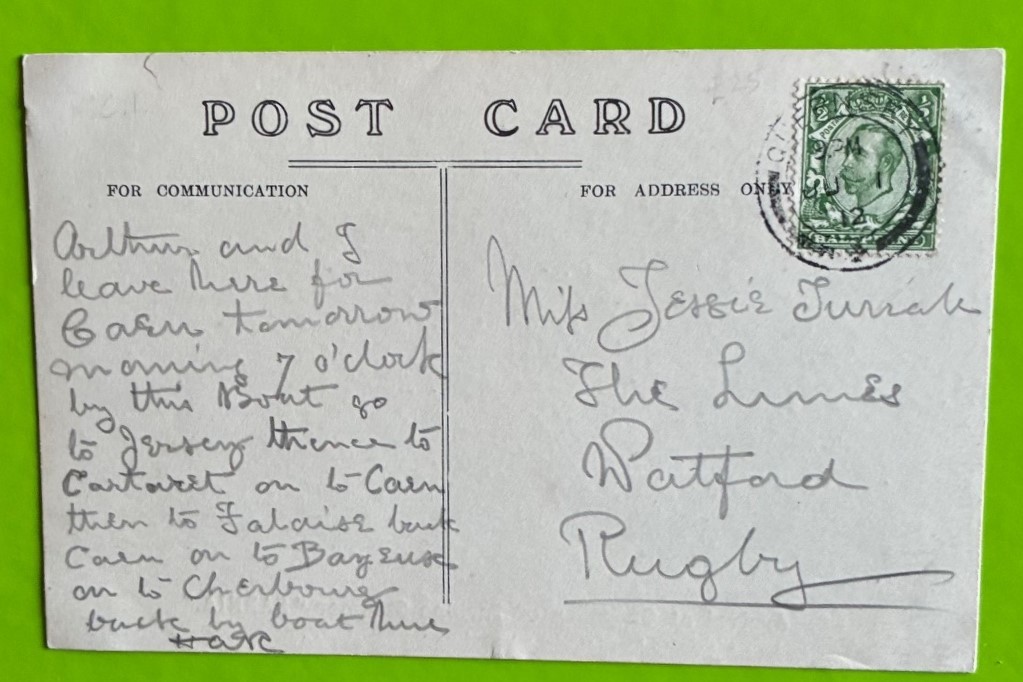 POST CARD
FOR COMMUNICATION
FOR ADDRESS ONLY
Arthur and I
leave here for
Caen tomorrow
morning 7 o'clock
by this Boat go
to Jersey thence to
Cartaret on to Caen
then to Falaise back
Caen on to Bayeux
on to Cherbourg
back by boat
Miss Jessie Turrall
The Limes
Watford
Rugby
9 PM
JU 1
12